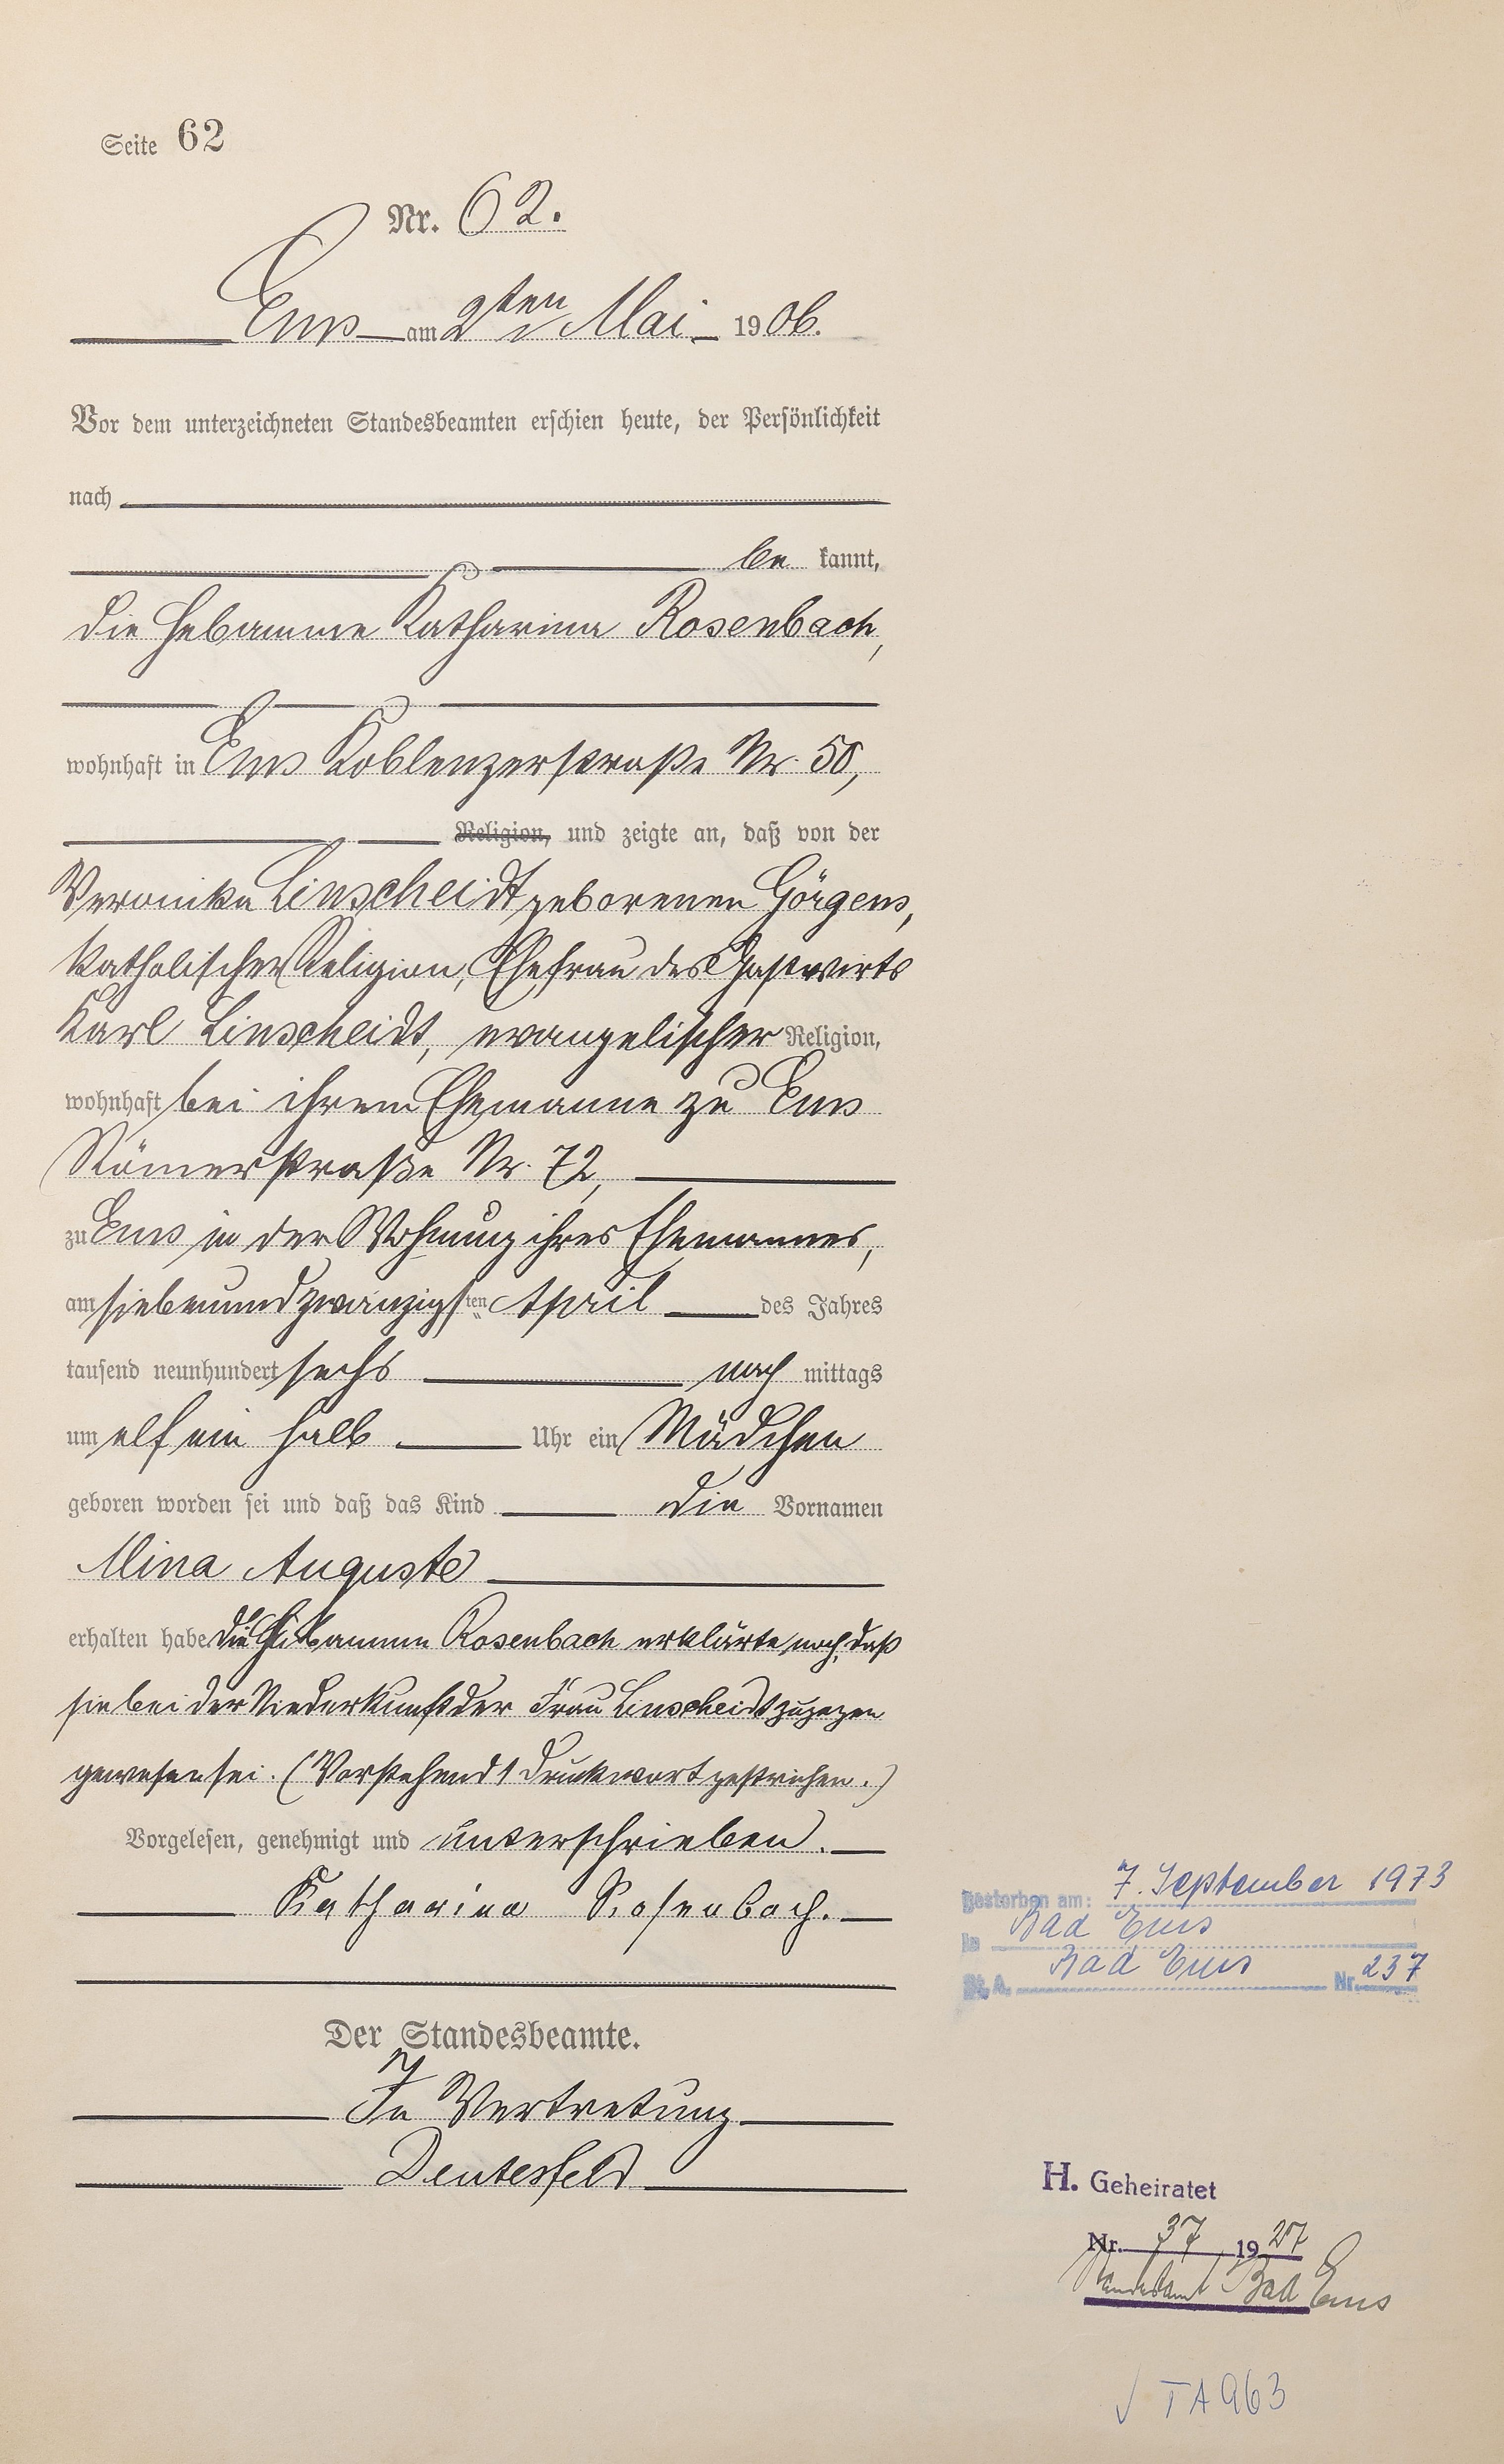 Seite 62
Nr. 62.
Ems am 2ten Mai 1906.
Vor dem unterzeichneten Standesbeamten erschien heute, der Persönlichkeit
nach
be kannt,
die Hebamme Katharina Rosenbach,
wohnhaft in Ems Koblenzerstraße Nr. 50,
Religion, und zeigte an, daß von der
Veronika Linscheidt geborenen Görgens,
katholischer Religion, Ehefrau des Gastwirts
Karl Linscheidt, evangelischer Religion,
wohnhaft bei ihrem Ehemanne zu Ems
Römerstraße Nr. 72,
zu Ems in der Wohnung ihres Ehemannes,
am siebenundzwanzigsten April des Jahres
tausend neunhundert sechs nach mittags
um elf ein halb Uhr ein Mädchen
geboren worden sei und daß das Kind die Vornamen
Mina Auguste
erhalten habe. Die Hebamme Rosenbach erklärte noch, daß
sie bei der Niederkunft der Frau Linscheidt zugegen
gewesen sei. (Vorstehend 1 Druckwort gestrichen.)
Vorgelesen, genehmigt und unterschrieben.
Katharina Rosenbach.
Der Standesbeamte.
In Vertretung
Deutesfeld
gestorben am: 7. September 1973
in Bad Ems
St. A. Bad Ems Nr. 237
H. Geheiratet
Nr. 37 1927
Standesamt Bad Ems
√ TA 963